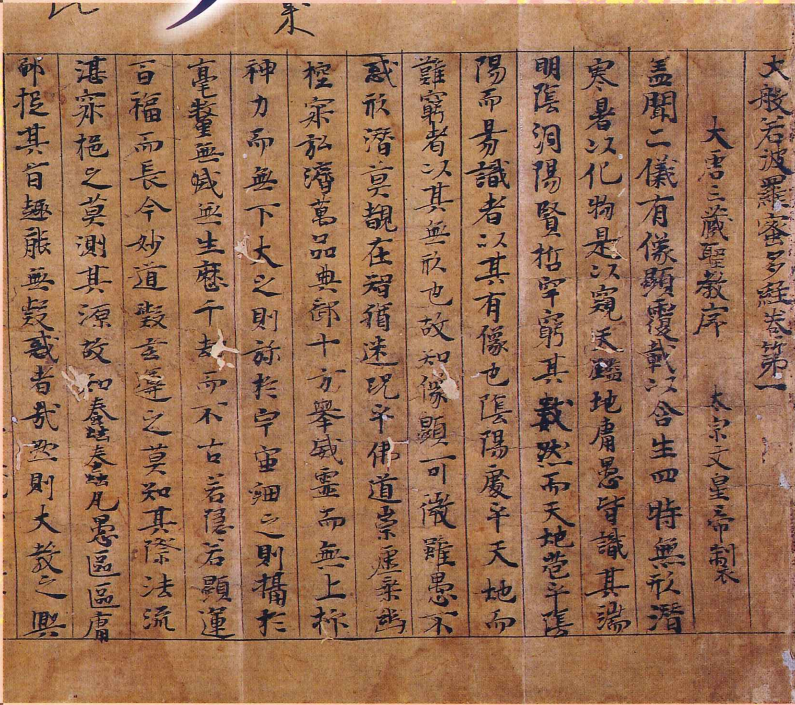 大般若波羅蜜多経卷第一
大唐三藏聖教序 太宗文皇帝製
盖聞二儀有像顯覆載以含生四時無形潜
寒暑以化物是以窺天鑑地庸愚皆識其端
明陰洞陽賢哲罕窮其數然而天地苞乎陰
陽而易識者以其有像也陰陽處乎天地而
難窮者以其無形也故知像顯可徵雖愚不
惑形潜莫覩在智猶迷況乎佛道崇虛乗幽
控寂弘濟萬品典御十方舉威靈而無上抑
神力而無下大之則弥於宇宙細之則攝於
毫氂無滅無生歷千劫而不古若隱若顯運
百福而長今妙道凝玄遵之莫知其際法流
湛寂挹之莫測其源故知蠢蠢凡愚區區庸
鄙投其旨趣能無疑惑者哉然則大教之興